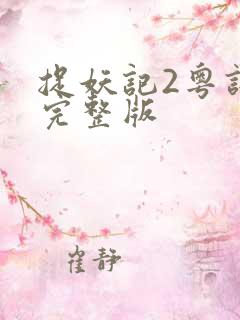 捉妖記2粤語
完整版
崔静